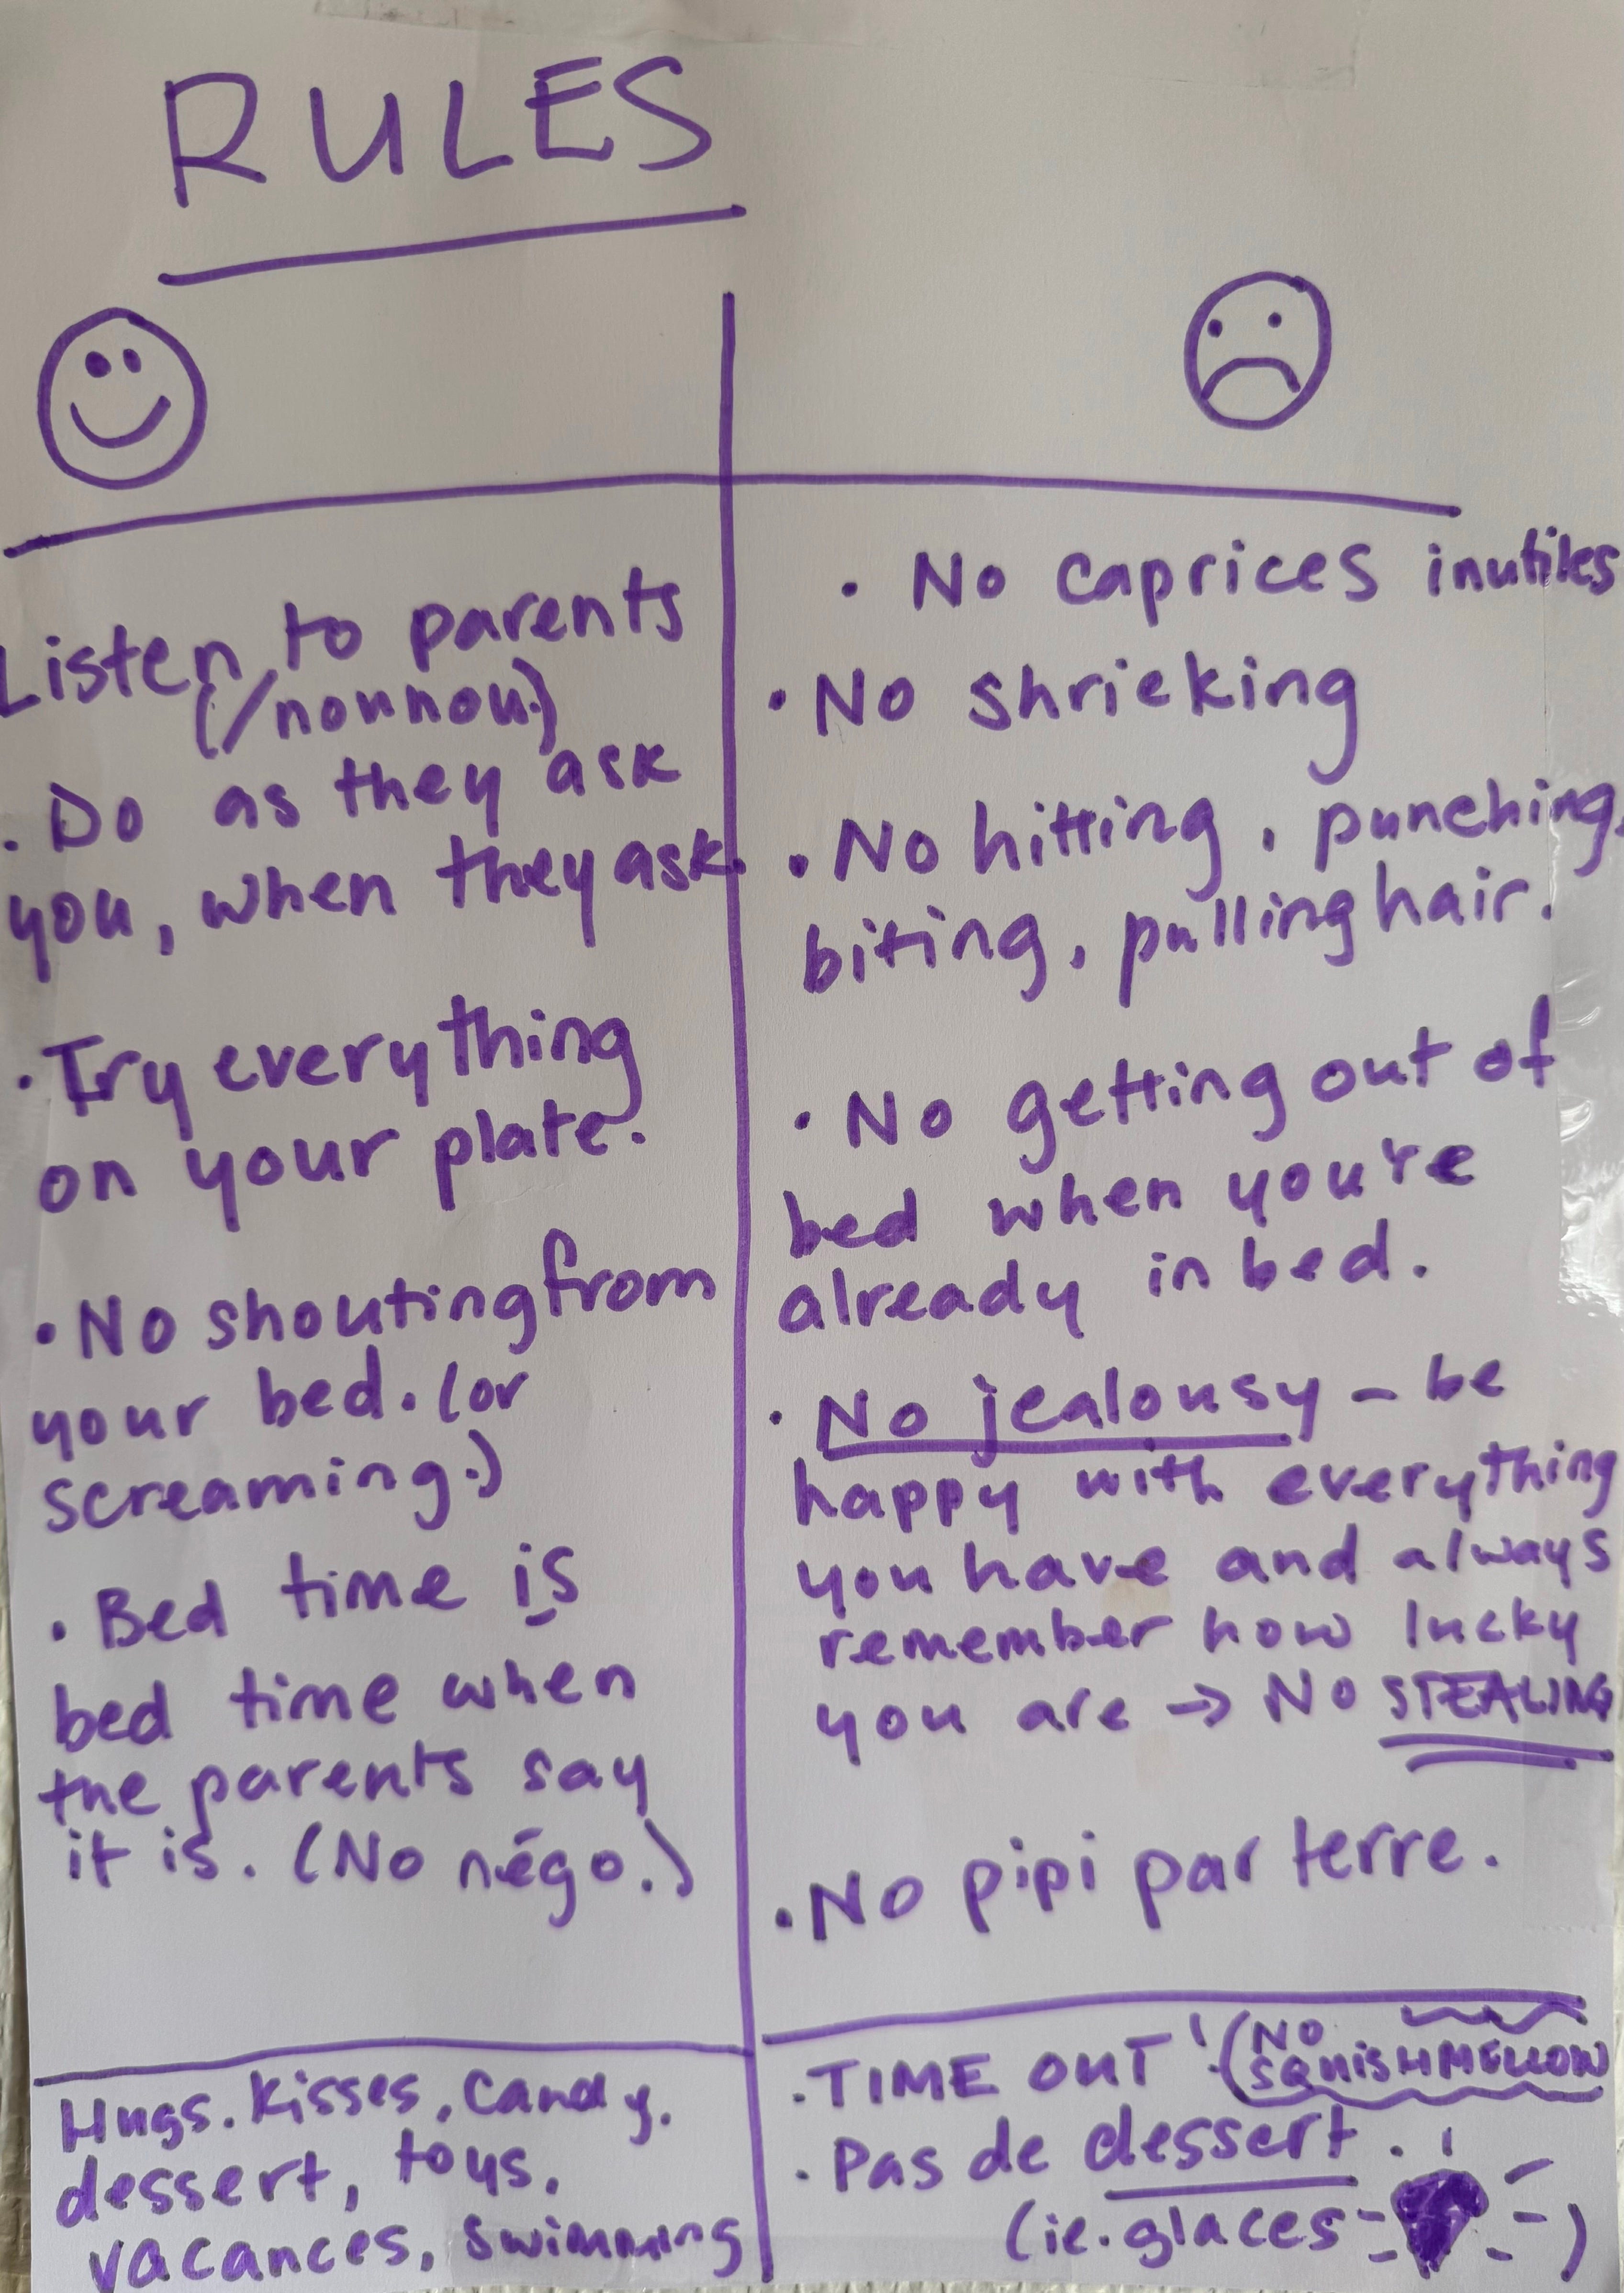 RULES
Listen to parents
(/nounou.)
. Do as they ask
you, when they ask.
. Try everything
on your plate.
. No shouting from
your bed. (or
screaming.)
. Bed time is
bed time when
the parents say
it is. (No négo.)
Hugs. Kisses, Candy,
dessert, toys,
vacances, swimming
. No caprices inutiles
. No shrieking
. No hitting, punching,
biting, pulling hair.
. No getting out of
bed when you're
already in bed.
. No jealousy - be
happy with everything
you have and always
remember how lucky
you are → No STEALING
. No pipi par terre.
. TIME OUT ! (NO
SQUISHMELLOW
. Pas de dessert.
(ie. glaces )